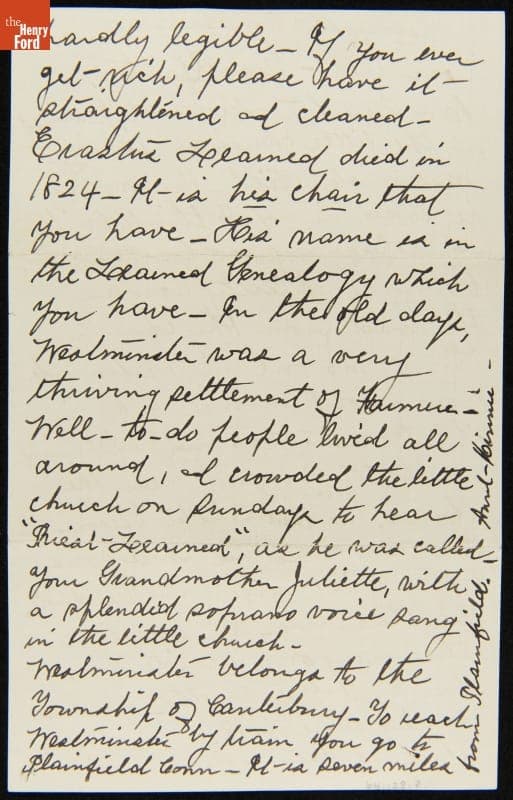 the
Henry
Ford
hardly legible - If you ever
get rich, please have it
straightened and cleaned -
Erastus Learned died in
1824 - It is his chair that
you have - His name is in
the Learned Genealogy which
you have - In the old days,
Westminster was a very
thriving settlement of
Well-to-do people lived all
around, and crowded the little
church on Sundays to hear
"Priest-Learned", as he was called
your Grandmother Juliette, with
a splendid soprano voice sang
in the little church -
Westminster belongs to the
Township of Canterbury - To reach
Westminster by train you go to
Plainfield Conn - It is seven miles
from Plainfield. - Aunt